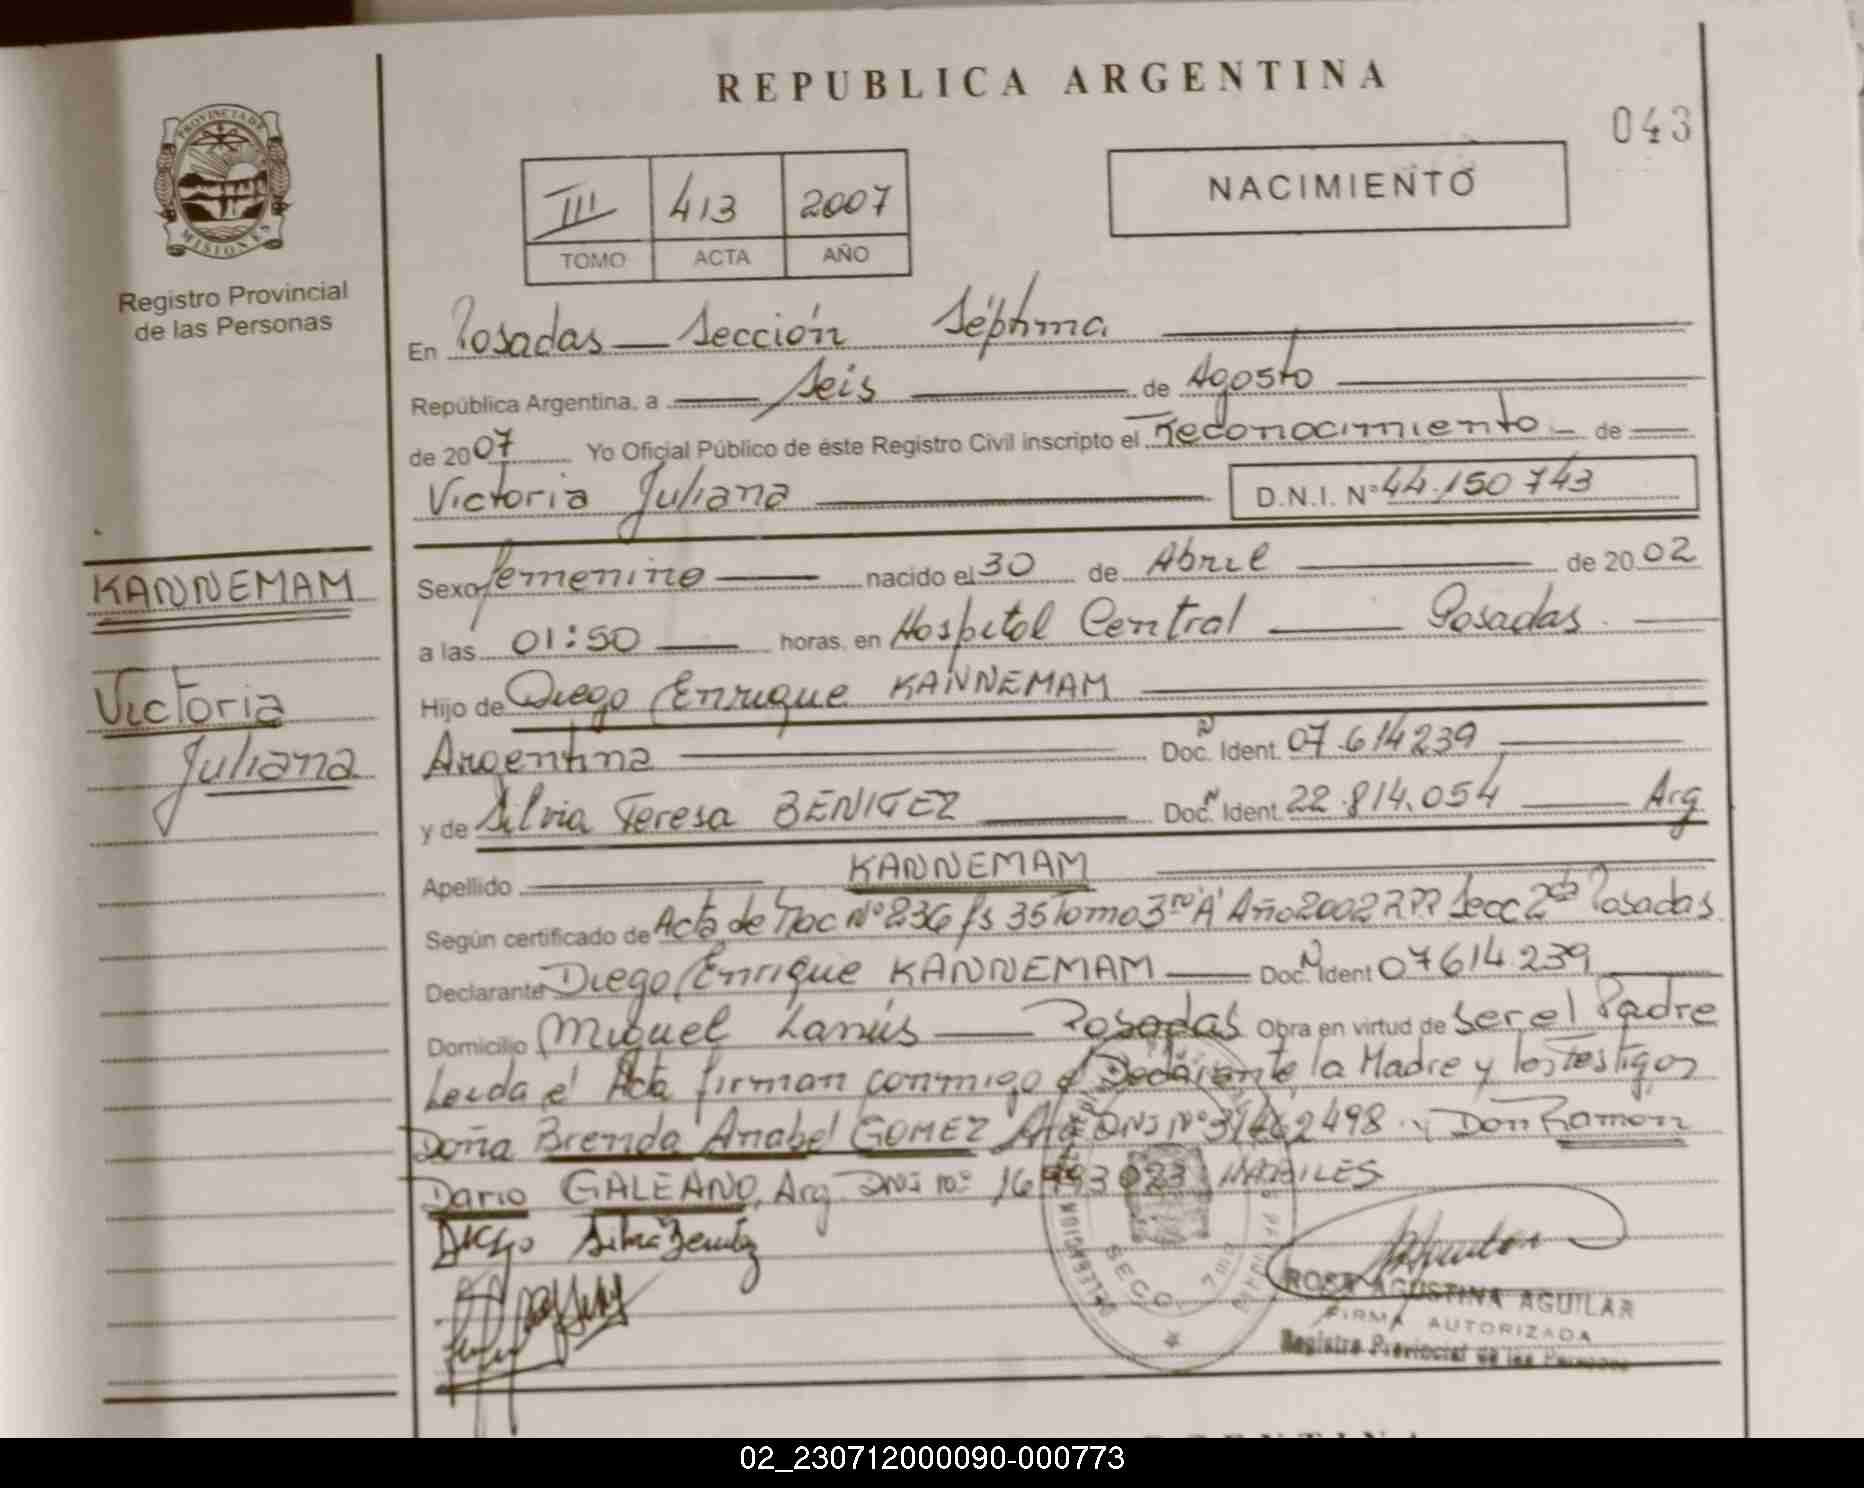 REPUBLICA ARGENTINA
043
PROVINCIA DE
MISIONES
Registro Provincial
de las Personas
III 413 2007
TOMO ACTA AÑO
NACIMIENTO
En Posadas — Sección Séptima
República Argentina, a — Seis — de Agosto
de 2007 Yo Oficial Público de éste Registro Civil inscripto el Reconocimiento — de —
Victoria Juliana — D.N.I. Nº 44.150743
KANNEMAM
Victoria
Juliana
Sexo femenino — nacido el 30 de Abril — de 2002
a las 01:50 — horas, en Hospital Central — Posadas. —
Hijo de Diego Enrique KANNEMAM
Argentina — Doc. Ident. 07.614239
y de Silvia Teresa BENITEZ — Doc. Ident. 22.814.054 — Arg
Apellido — KANNEMAM
Según certificado de Acta de Nac Nº 236 fs 35 Tomo 3ro "A" Año 2002 RPP Secc 2da Posadas
Declarante Diego Enrique KANNEMAM — Doc. Ident 07614.239
Domicilio Miguel Lanús — Posadas Obra en virtud de ser el Padre
Leida el Acta firman conmigo el Declarante, la Madre y los Testigos
Doña Brenda Anabel GOMEZ Arg DNI Nº 31462498 y Don Ramon
Dario GALEANO, Arg DNI Nº 16993023 HABILES
Diego Silvia Benitez
SECC. 7ma
ROSA AGUSTINA AGUILAR
FIRMA AUTORIZADA
Registro Provincial de las Personas
02_230712000090-000773